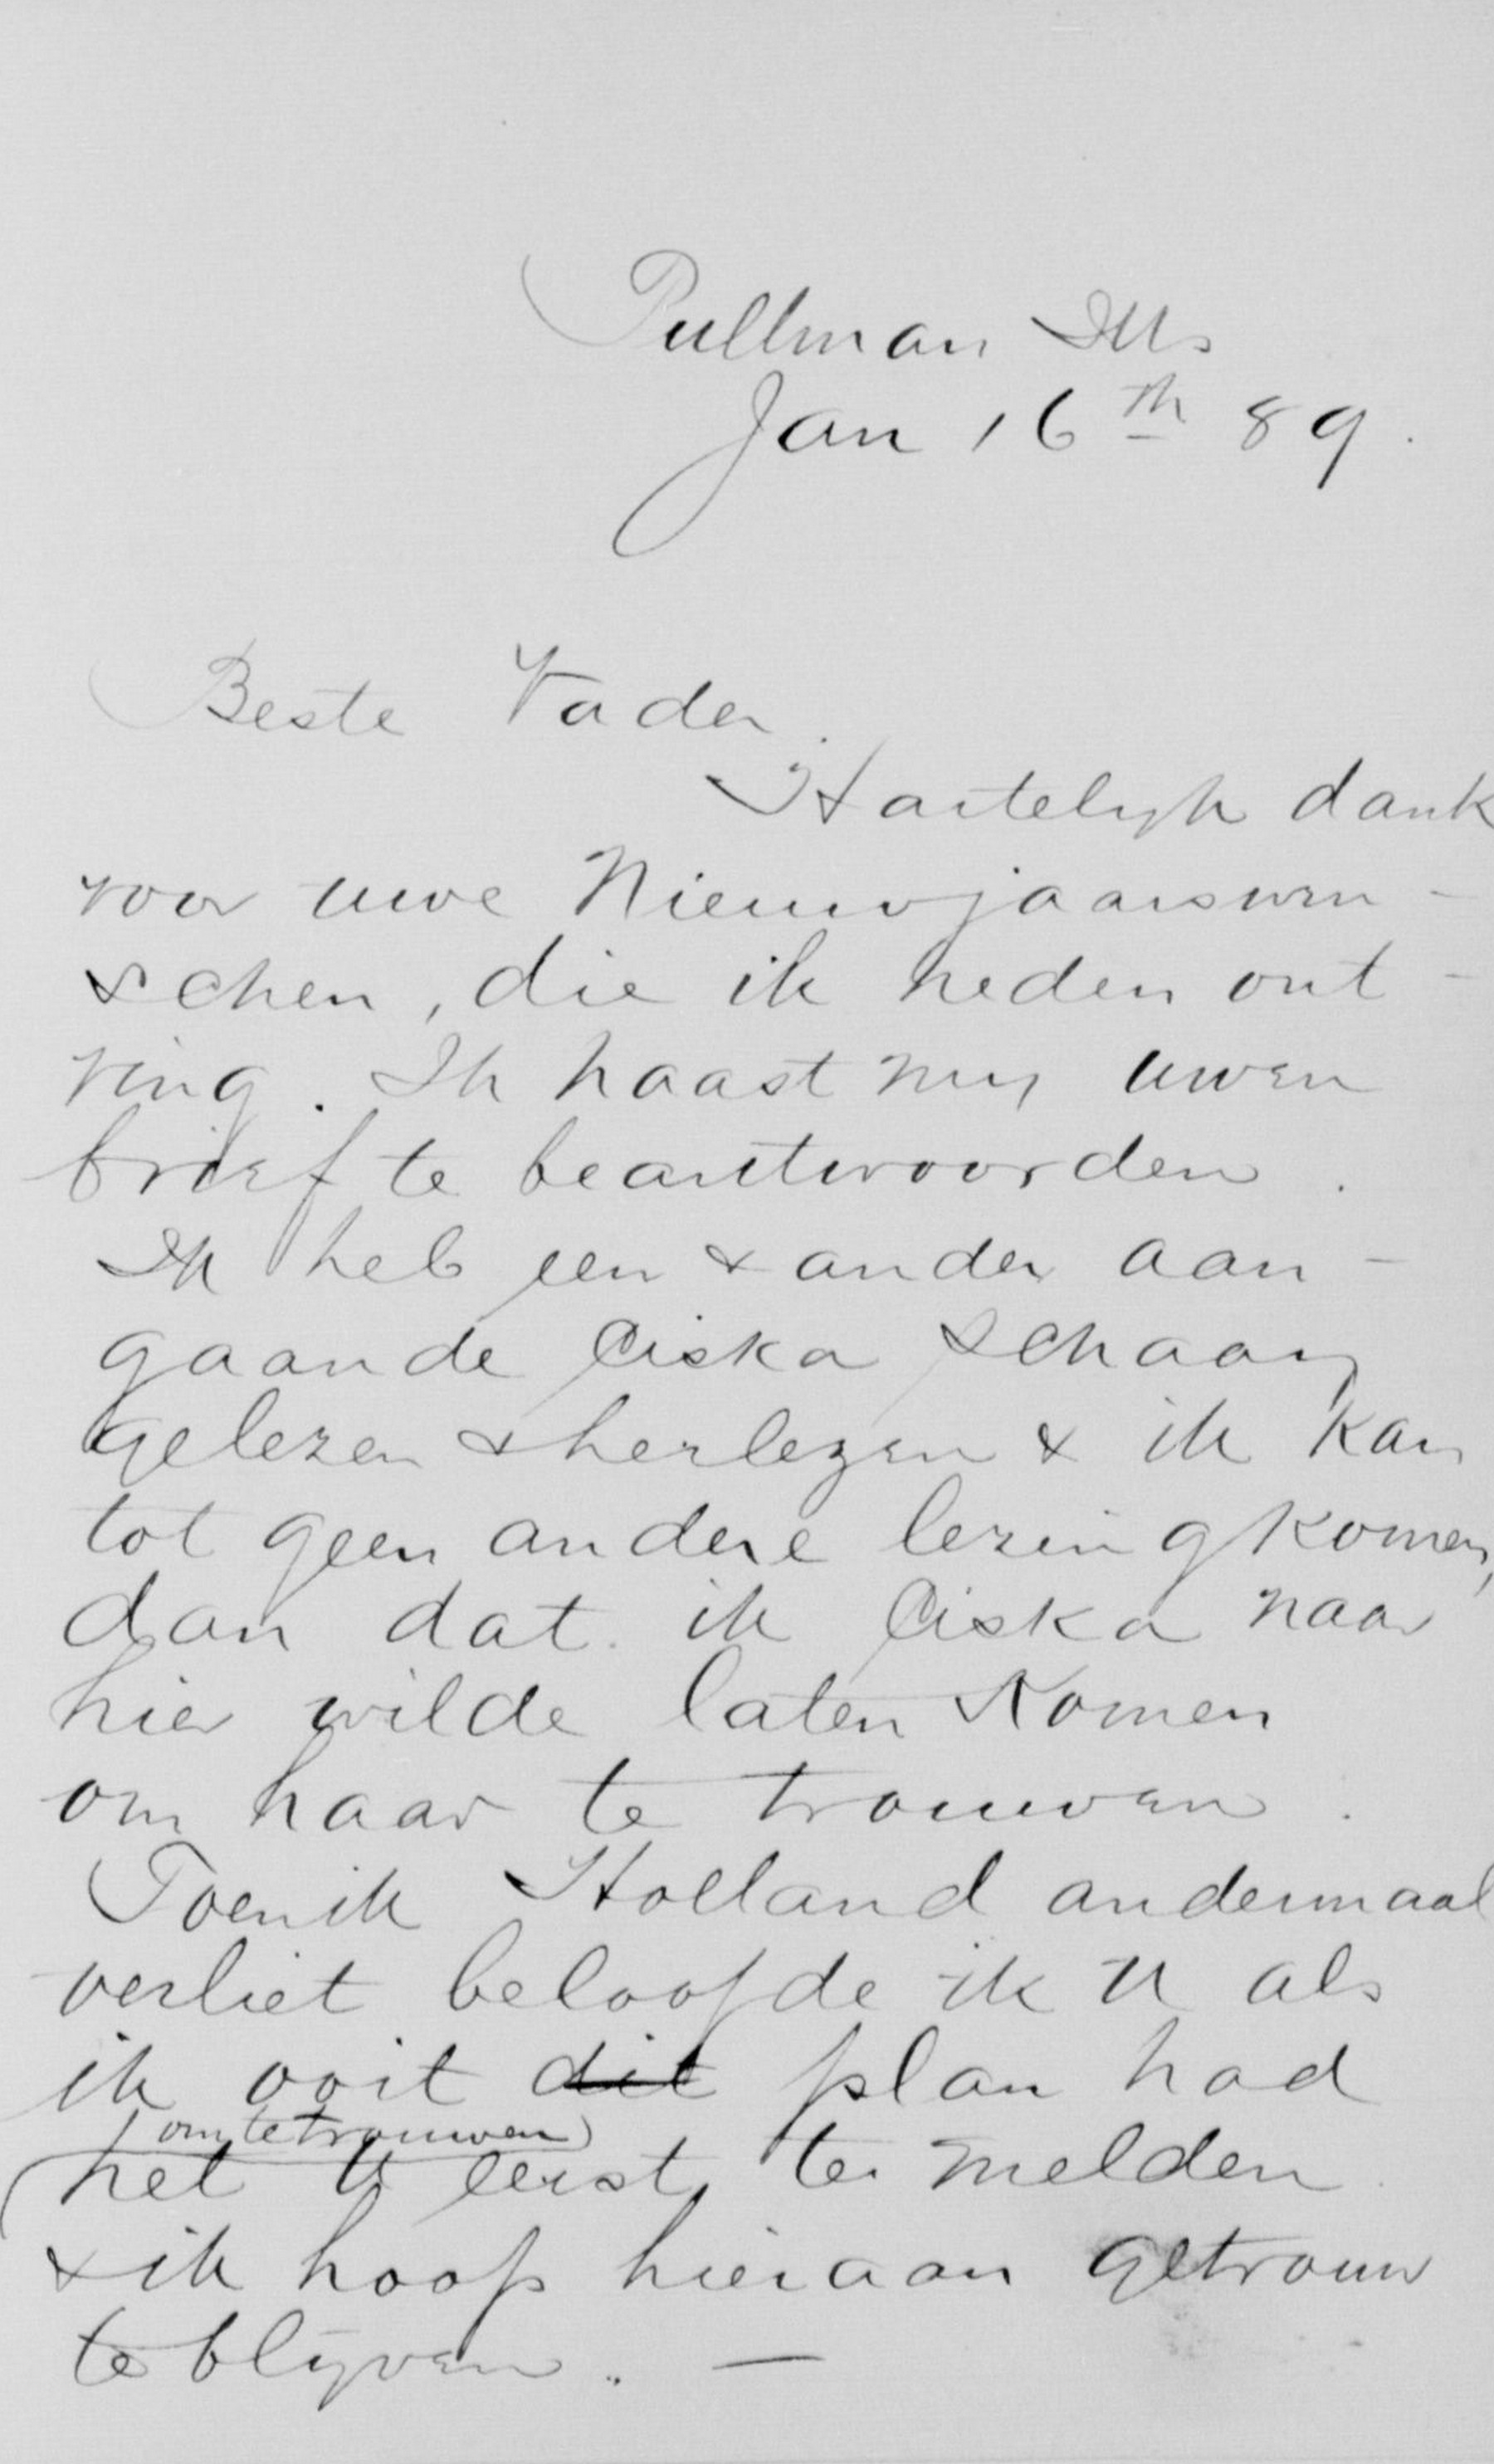 Pullman Ills
Jan 16th 89.
Beste Vader.
Hartelyk dank
voor uwe Nieuwjaarswen-
schen, die ik heden ont-
ving. Ik haast my uwen
brief te beantwoorden.
Ik heb een & ander aan-
gaande Ciska Schaay
gelezen & herlezen & ik kan
tot geen andere lezing komen,
dan dat ik Ciska naar
hier wilde laten komen
om haar te trouwen.
Toen ik Holland andermaal
verliet beloofde ik U als
ik ooit dit plan had
(om te trouwen)
het U eerst te melden
& ik hoop hieraan getrouw
te blyven. —